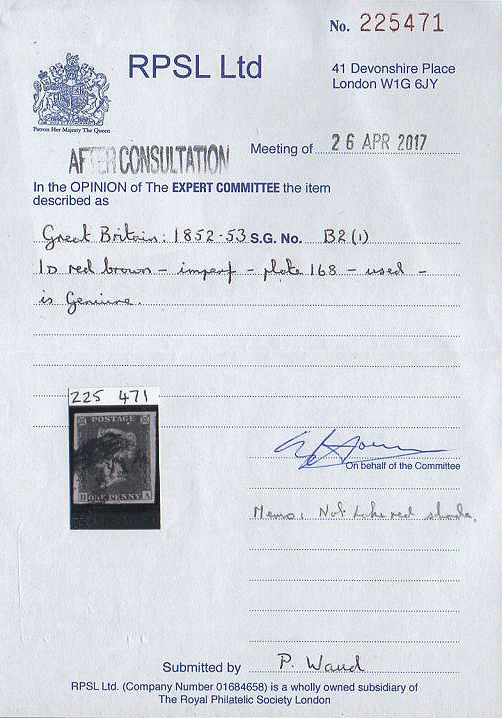 No. 225471
RPSL Ltd
41 Devonshire Place
London W1G 6JY
Patron Her Majesty The Queen
AFTER CONSULTATION
Meeting of 26 APR 2017
In the OPINION of The EXPERT COMMITTEE the item
described as
Great Britain: 1852-53 S.G. No. B2(1)
1D red brown - imperf - plate 168 - used -
is Genuine.
225 471
POSTAGE
ONE PENNY A
On behalf of the Committee
Memo: Not Lake red shade.
Submitted by P. Waud
RPSL Ltd. (Company Number 01684658) is a wholly owned subsidiary of
The Royal Philatelic Society London